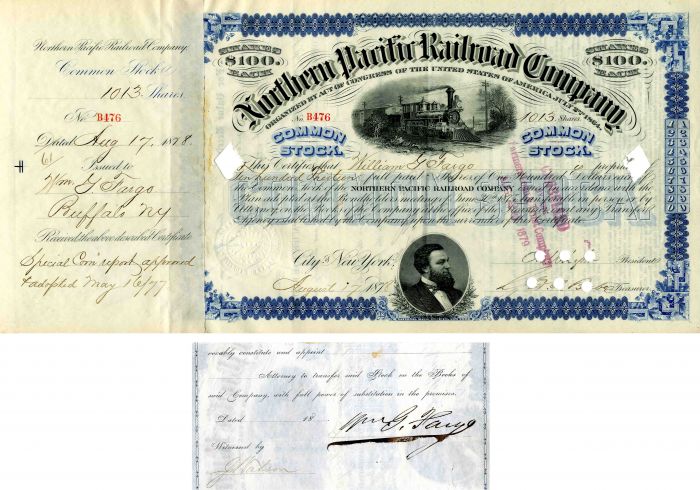 Northern Pacific Railroad Company.
Common Stock
1013 Shares
No. B476
Dated Aug 17, 1878.
Issued to
Wm G Fargo
Buffalo NY
Received the above described Certificate
Special Com' report approved
& adopted May 16/77
SHARES $100. EACH
SHARES $100. EACH
Northern Pacific Railroad Company
ORGANIZED BY ACT OF CONGRESS OF THE UNITED STATES OF AMERICA JULY 2ND 1864.
No. B476
1013 Shares.
COMMON STOCK.
COMMON STOCK.
This Certifies that William G Fargo is
full paid Shares of One Hundred Dollars each
the Common Stock of the NORTHERN PACIFIC RAILROAD COMPANY
Plan adopted by the Bondholders meeting of June 30th 1875 Transferable in person or by
Attorney on the Books of the Company at the office of the
City of New York,
August 17 1878
President
Treasurer.
1879
vocably constitute and appoint
Attorney to transfer said Stock on the Books of
said Company, with full power of substitution in the premises.
Dated 18
Wm G. Fargo
Witnessed by